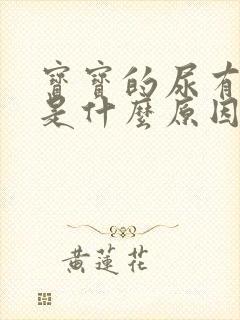 寶寶的尿有
是什麼原因
黃蓮花